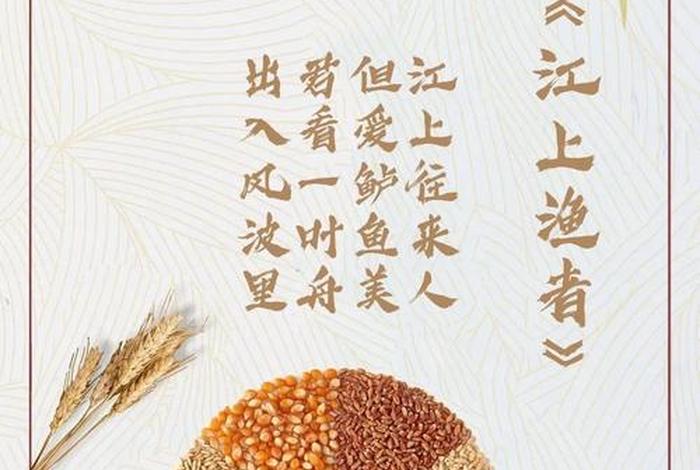 《江上渔者》
江上往来人
但爱鲈鱼美
若看一叶舟
出入风波里